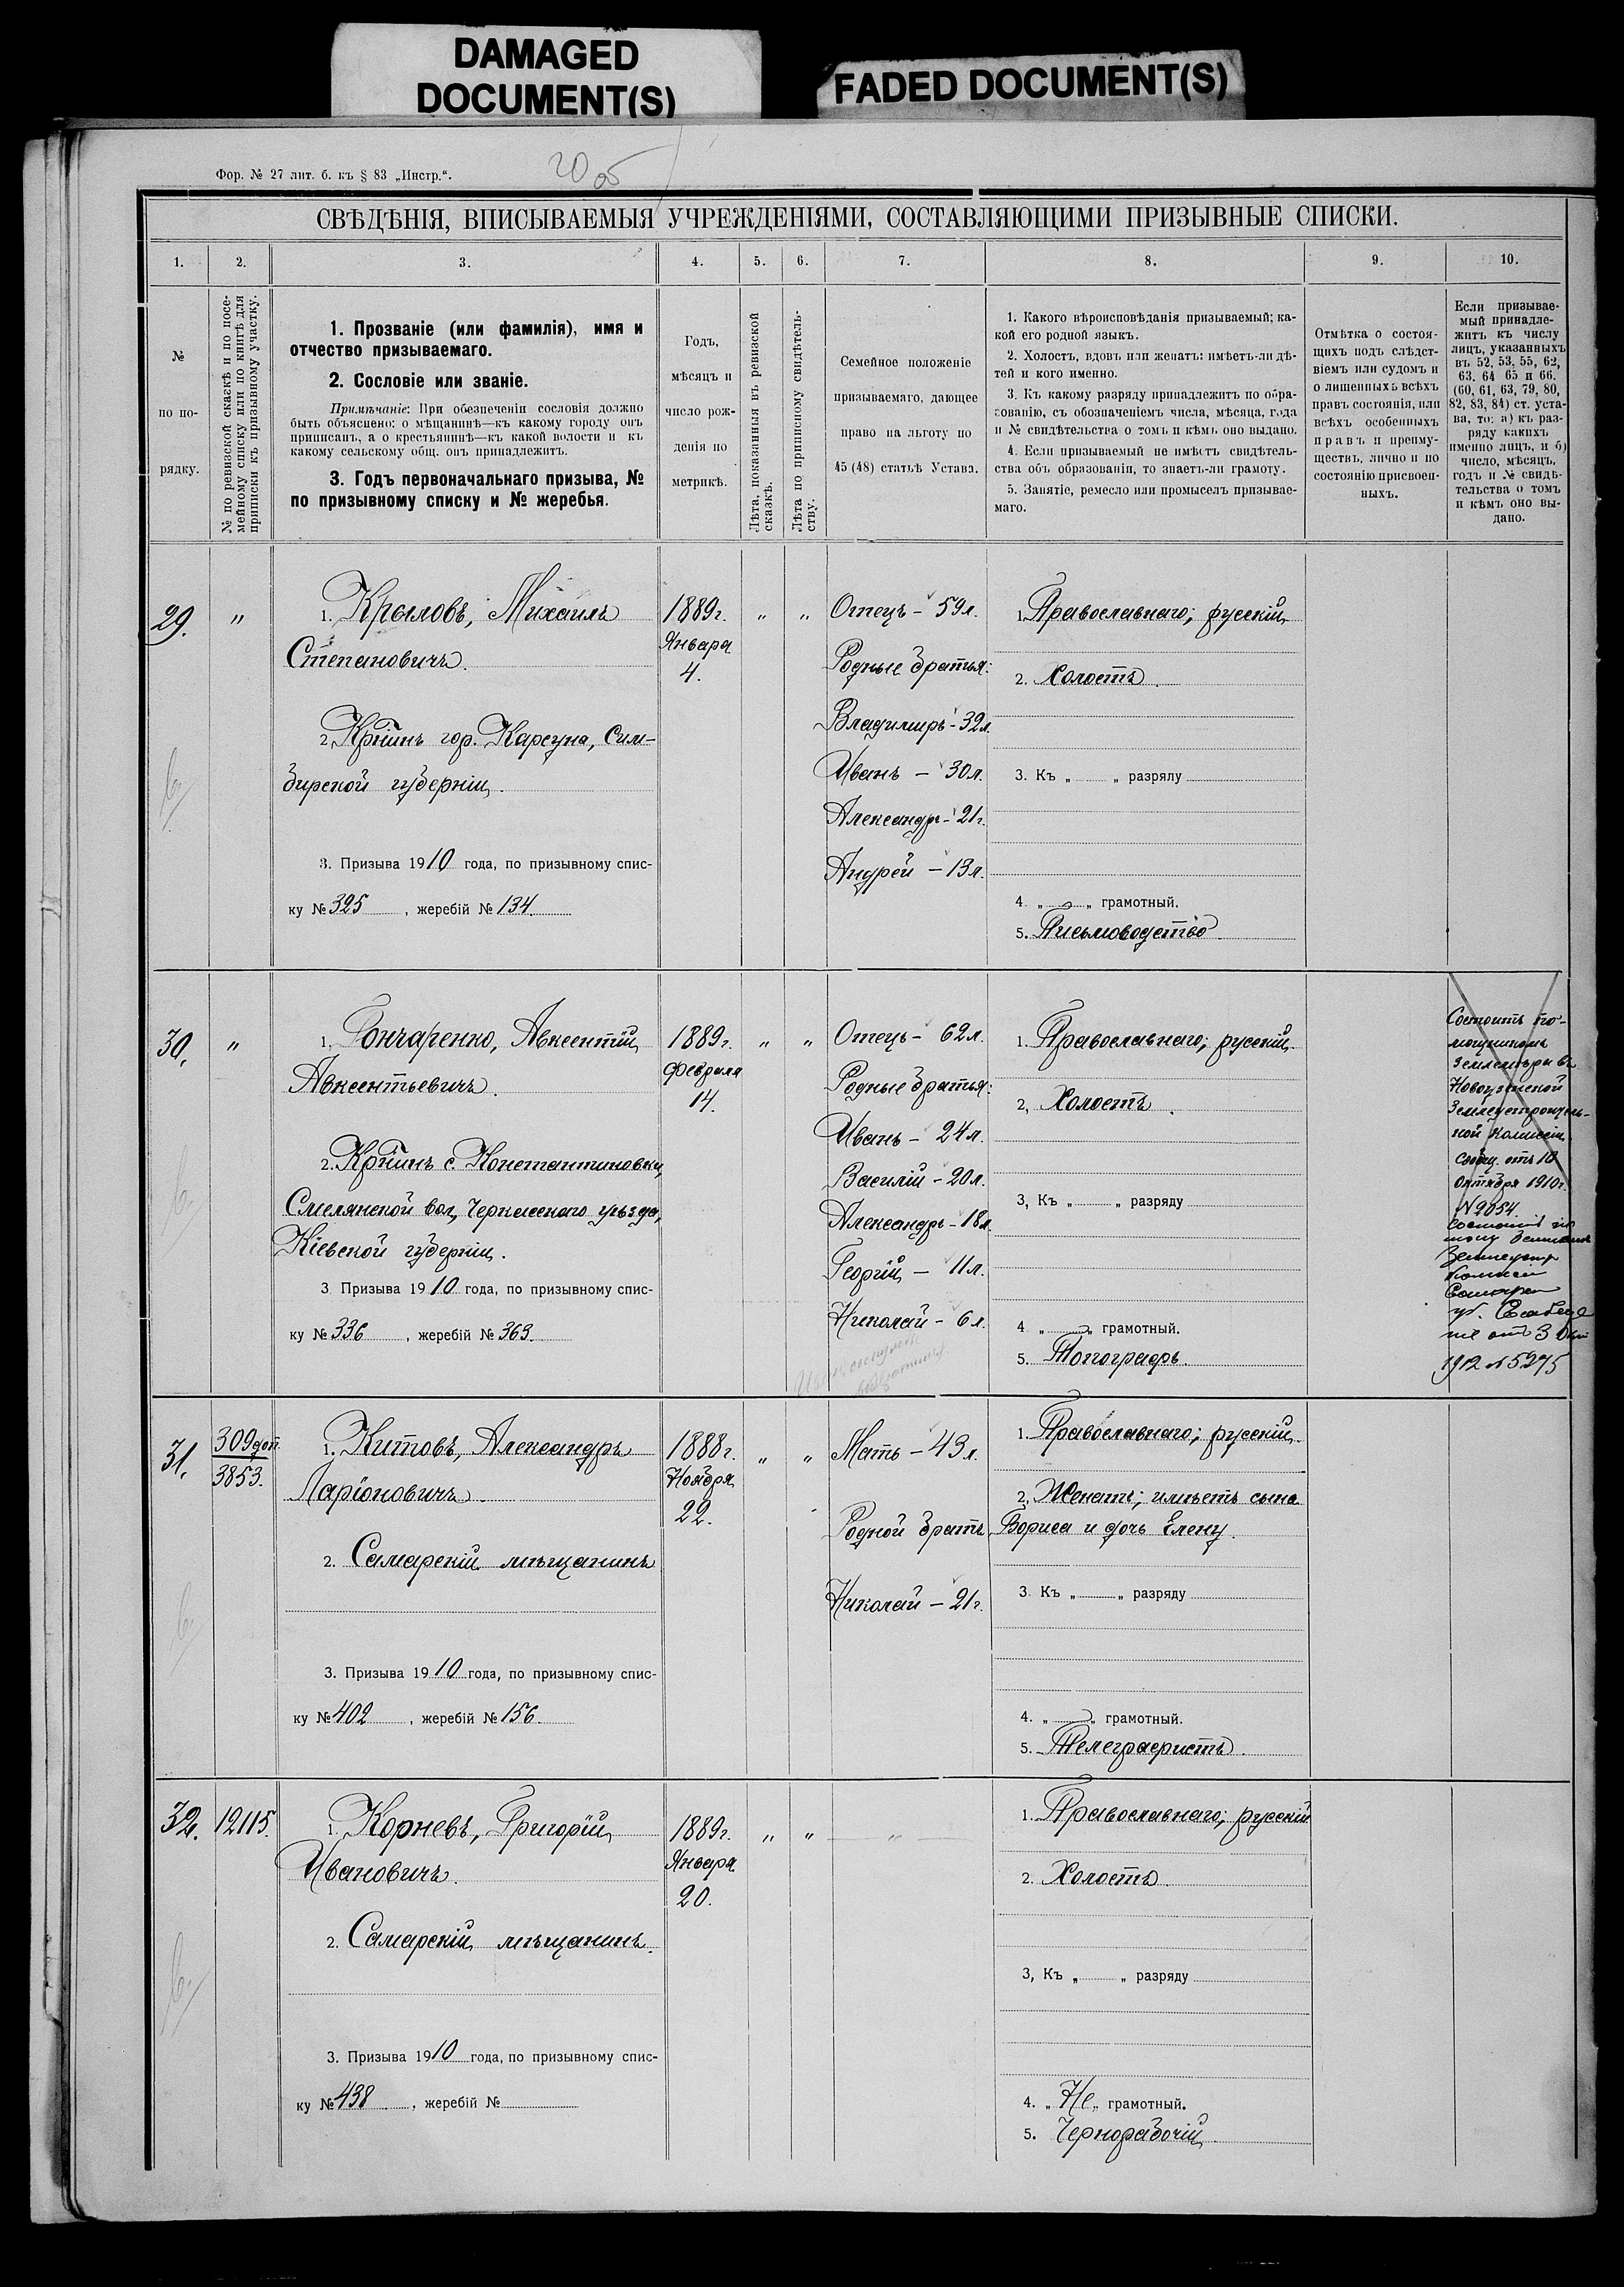 DAMAGED
DOCUMENT(S)
FADED DOCUMENT(S)
Фор. № 27 лит. б. къ § 83 „Инстр.“.
20 об
СВѢДѢНІЯ, ВПИСЫВАЕМЫЯ УЧРЕЖДЕНІЯМИ, СОСТАВЛЯЮЩИМИ ПРИЗЫВНЫЕ СПИСКИ.
1. 2. 3. 4. 5. 6. 7. 8. 9. 10.
№
по по-
рядку.
№ по ревизской сказкѣ и по посе-
мейному списку или по книгѣ для
приписки къ призывному участку.
1. Прозваніе (или фамилія), имя и
отчество призываемаго.
2. Сословіе или званіе.
Примѣчаніе: При обезпеченіи сословія должно
быть объяснено: о мѣщанинѣ—къ какому городу онъ
приписанъ, а о крестьянинѣ—къ какой волости и къ
какому сельскому общ. онъ принадлежитъ.
3. Годъ первоначальнаго призыва, №
по призывному списку и № жеребья.
Годъ,
мѣсяцъ и
число рож-
денія по
метрикѣ.
Лѣта, показанныя въ ревизской
сказкѣ.
Лѣта по приписному свидѣтель-
ству.
Семейное положеніе
призываемаго, дающее
право на льготу по
45 (48) статьѣ Устава.
1. Какого вѣроисповѣданія призываемый; ка-
кой его родной языкъ.
2. Холостъ, вдовъ или женатъ: имѣетъ-ли дѣ-
тей и кого именно.
3. Къ какому разряду принадлежитъ по обра-
зованію, съ обозначеніемъ числа, мѣсяца, года
и № свидѣтельства о томъ и кѣмъ оно выдано.
4. Если призываемый не имѣетъ свидѣтель-
ства объ образованіи, то знаетъ-ли грамоту.
5. Занятіе, ремесло или промыселъ призывае-
маго.
Отмѣтка о состоя-
щихъ подъ слѣдст-
віемъ или судомъ и
о лишенныхъ всѣхъ
правъ состоянія, или
всѣхъ особенныхъ
правъ и преиму-
ществъ, лично и по
состоянію присвоен-
ныхъ.
Если призывае-
мый принадле-
житъ къ числу
лицъ, указанныхъ
въ 52, 53, 55, 62,
63, 64 65 и 66.
(60, 61, 63, 79, 80,
82, 83, 84) ст. уста-
ва, то: а) къ раз-
ряду какихъ
именно лицъ, и б)
число, мѣсяцъ,
годъ и № свидѣ-
тельства о томъ
и кѣмъ оно вы-
дано.
29.
„
1. Крыловъ, Михаилъ
Степановичъ.
2. Кр-нинъ гор. Карсуна, Сим-
бирской губерніи.
3. Призыва 1910 года, по призывному спис-
ку № 325, жеребій № 134.
1889г.
Января
4.
„ „
Отецъ - 59л.
Родные братья:
Владимиръ - 32л.
Иванъ - 30л.
Александръ - 21г.
Андрей - 13л.
1. Православнаго; русскій
2. Холостъ.
3. Къ „ „ разряду
4. „ „ грамотный.
5. Письмоводство.
30.
„
1. Гончаренко, Авксентій
Авксентьевичъ.
2. Кр-нинъ с. Константиновки,
Смелянской вол., Черкасскаго уѣзда,
Кіевской губерніи.
3 Призыва 1910 года, по призывному спис-
ку № 336, жеребій № 363.
1889г.
Февраля
14.
„ „
Отецъ - 62л.
Родные братья:
Иванъ - 24л.
Василій - 20л.
Александръ - 18л.
Георгій - 11л.
Николай - 6л.
1. Православнаго; русскій.
2, Холостъ.
3, Къ „ „ разряду
4 „ „ грамотный.
5. Топографъ.
Состоитъ по-
мощникомъ
Землемѣра въ
Новоузенской
Землеустроитель-
ной комиссіи
сообщ. отъ 10
Октября 1910г.
№ 2054
Землеустр
Комиссіи
1912 № 5275
31.
309 доп.
3853.
1. Китовъ, Александръ
Ларіоновичъ.
2. Самарскій мѣщанинъ
3. Призыва 1910 года, по призывному спис-
ку № 402, жеребій № 156.
1888г.
Ноября
22.
„ „
Мать - 43л.
Родной братъ
Николай - 21г.
1. Православнаго; русскій.
2, Женатъ; имѣетъ сына
Бориса и дочь Елену.
3. Къ „ „ разряду
4. „ „ грамотный.
5. Телеграфистъ.
32.
12115.
1. Корневъ, Григорій
Ивановичъ.
2. Самарскій мѣщанинъ.
3. Призыва 1910 года, по призывному спис-
ку № 438, жеребій №
1889г.
Января
20.
„ „ — „ —
1. Православнаго; русскій
2. Холостъ.
3, Къ „ „ разряду
4. „ Не „ грамотный.
5. Чернорабочій.